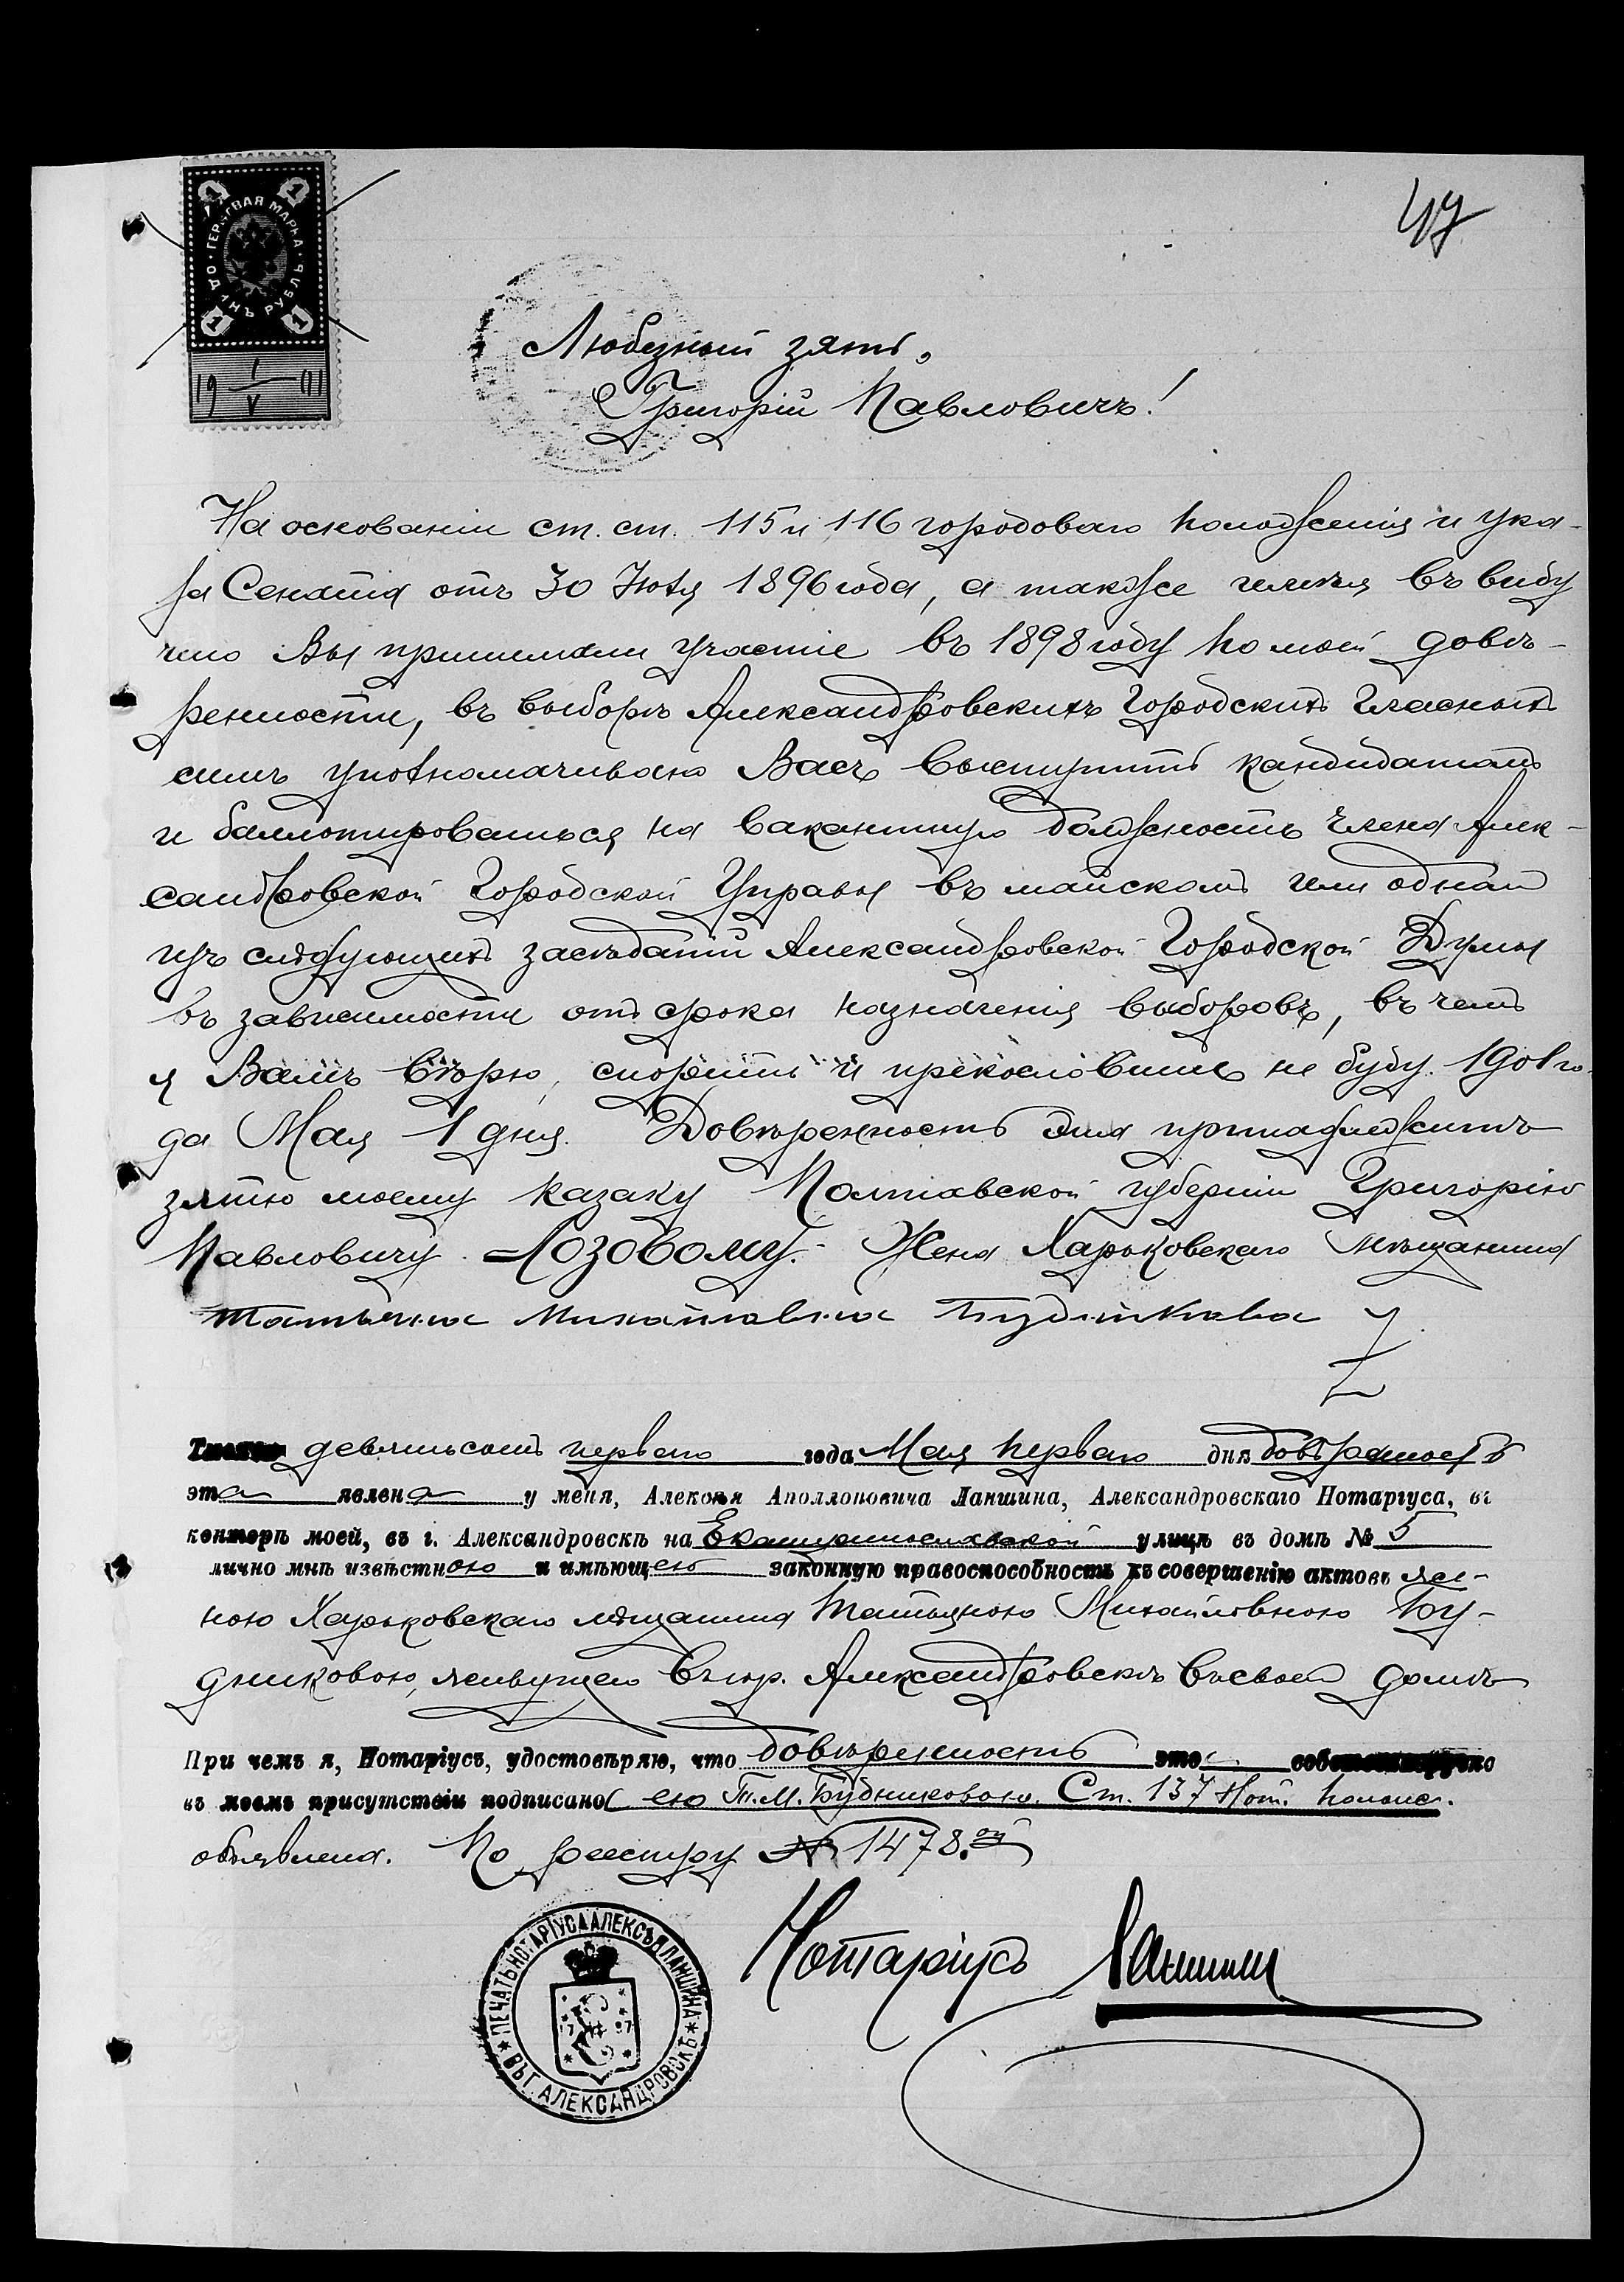 47
ГЕРБОВАЯ МАРКА
ОДИНЪ РУБЛЬ
1 1 1 1
19 1/V 01
Любезный зять,
Григорій Павловичъ!
На основаніи ст. ст. 115 и 116 городоваго положенія и ука-
за Сената отъ 30 Іюля 1896 года, а также имѣя въ виду
что Вы принимали участіе въ 1898 году по моей довѣ-
ренности, въ выборѣ Александровскихъ Городскихъ Гласныхъ
симъ уполномачиваю Васъ выступить кандидатомъ
и баллотироваться на вакантную должность Члена Алек-
сандровской Городской Управы въ майскомъ или одномъ
изъ слѣдующихъ засѣданій Александровской Городской Думы
въ зависимости отъ срока назначенія выборовъ, въ чемъ
я Вамъ вѣрю, спорить и прекословить не буду. 1901 го-
да Мая 1 дня. Довѣренность эта принадлежитъ
зятю моему казаку Полтавской губерніи Григорію
Павловичу Лозовому. Жена Харьковскаго мѣщанина
Татьяна Михайловна Будникова
Тысяча девятьсотъ перваго года Мая перваго дня довѣренность
эта явлена у меня, Алексѣя Аполлоновича Ланшина, Александровскаго Нотаріуса, въ
конторѣ моей, въ г. Александровскѣ на Екатеринославской улицѣ въ домѣ № 5
лично мнѣ извѣстною и имѣющею законную правоспособность къ совершенію актовъ же-
ною Харьковскаго мѣщанина Татьяною Михайловною Бу-
дниковою, живущею въ гор. Александровскѣ въ своемъ домѣ
При чемъ я, Нотаріусъ, удостовѣряю, что довѣренность эта собственноручно
въ моемъ присутствіи подписана ею Т. М. Будниковою. Ст. 137 Нот. полож.
объявлена. По реестру № 1478.ой
Нотаріусъ Ланшинъ
ПЕЧАТЬ НОТАРІУСА АЛЕКСѢЯ ЛАНШИНА
ВЪ Г. АЛЕКСАНДРОВСКѢ